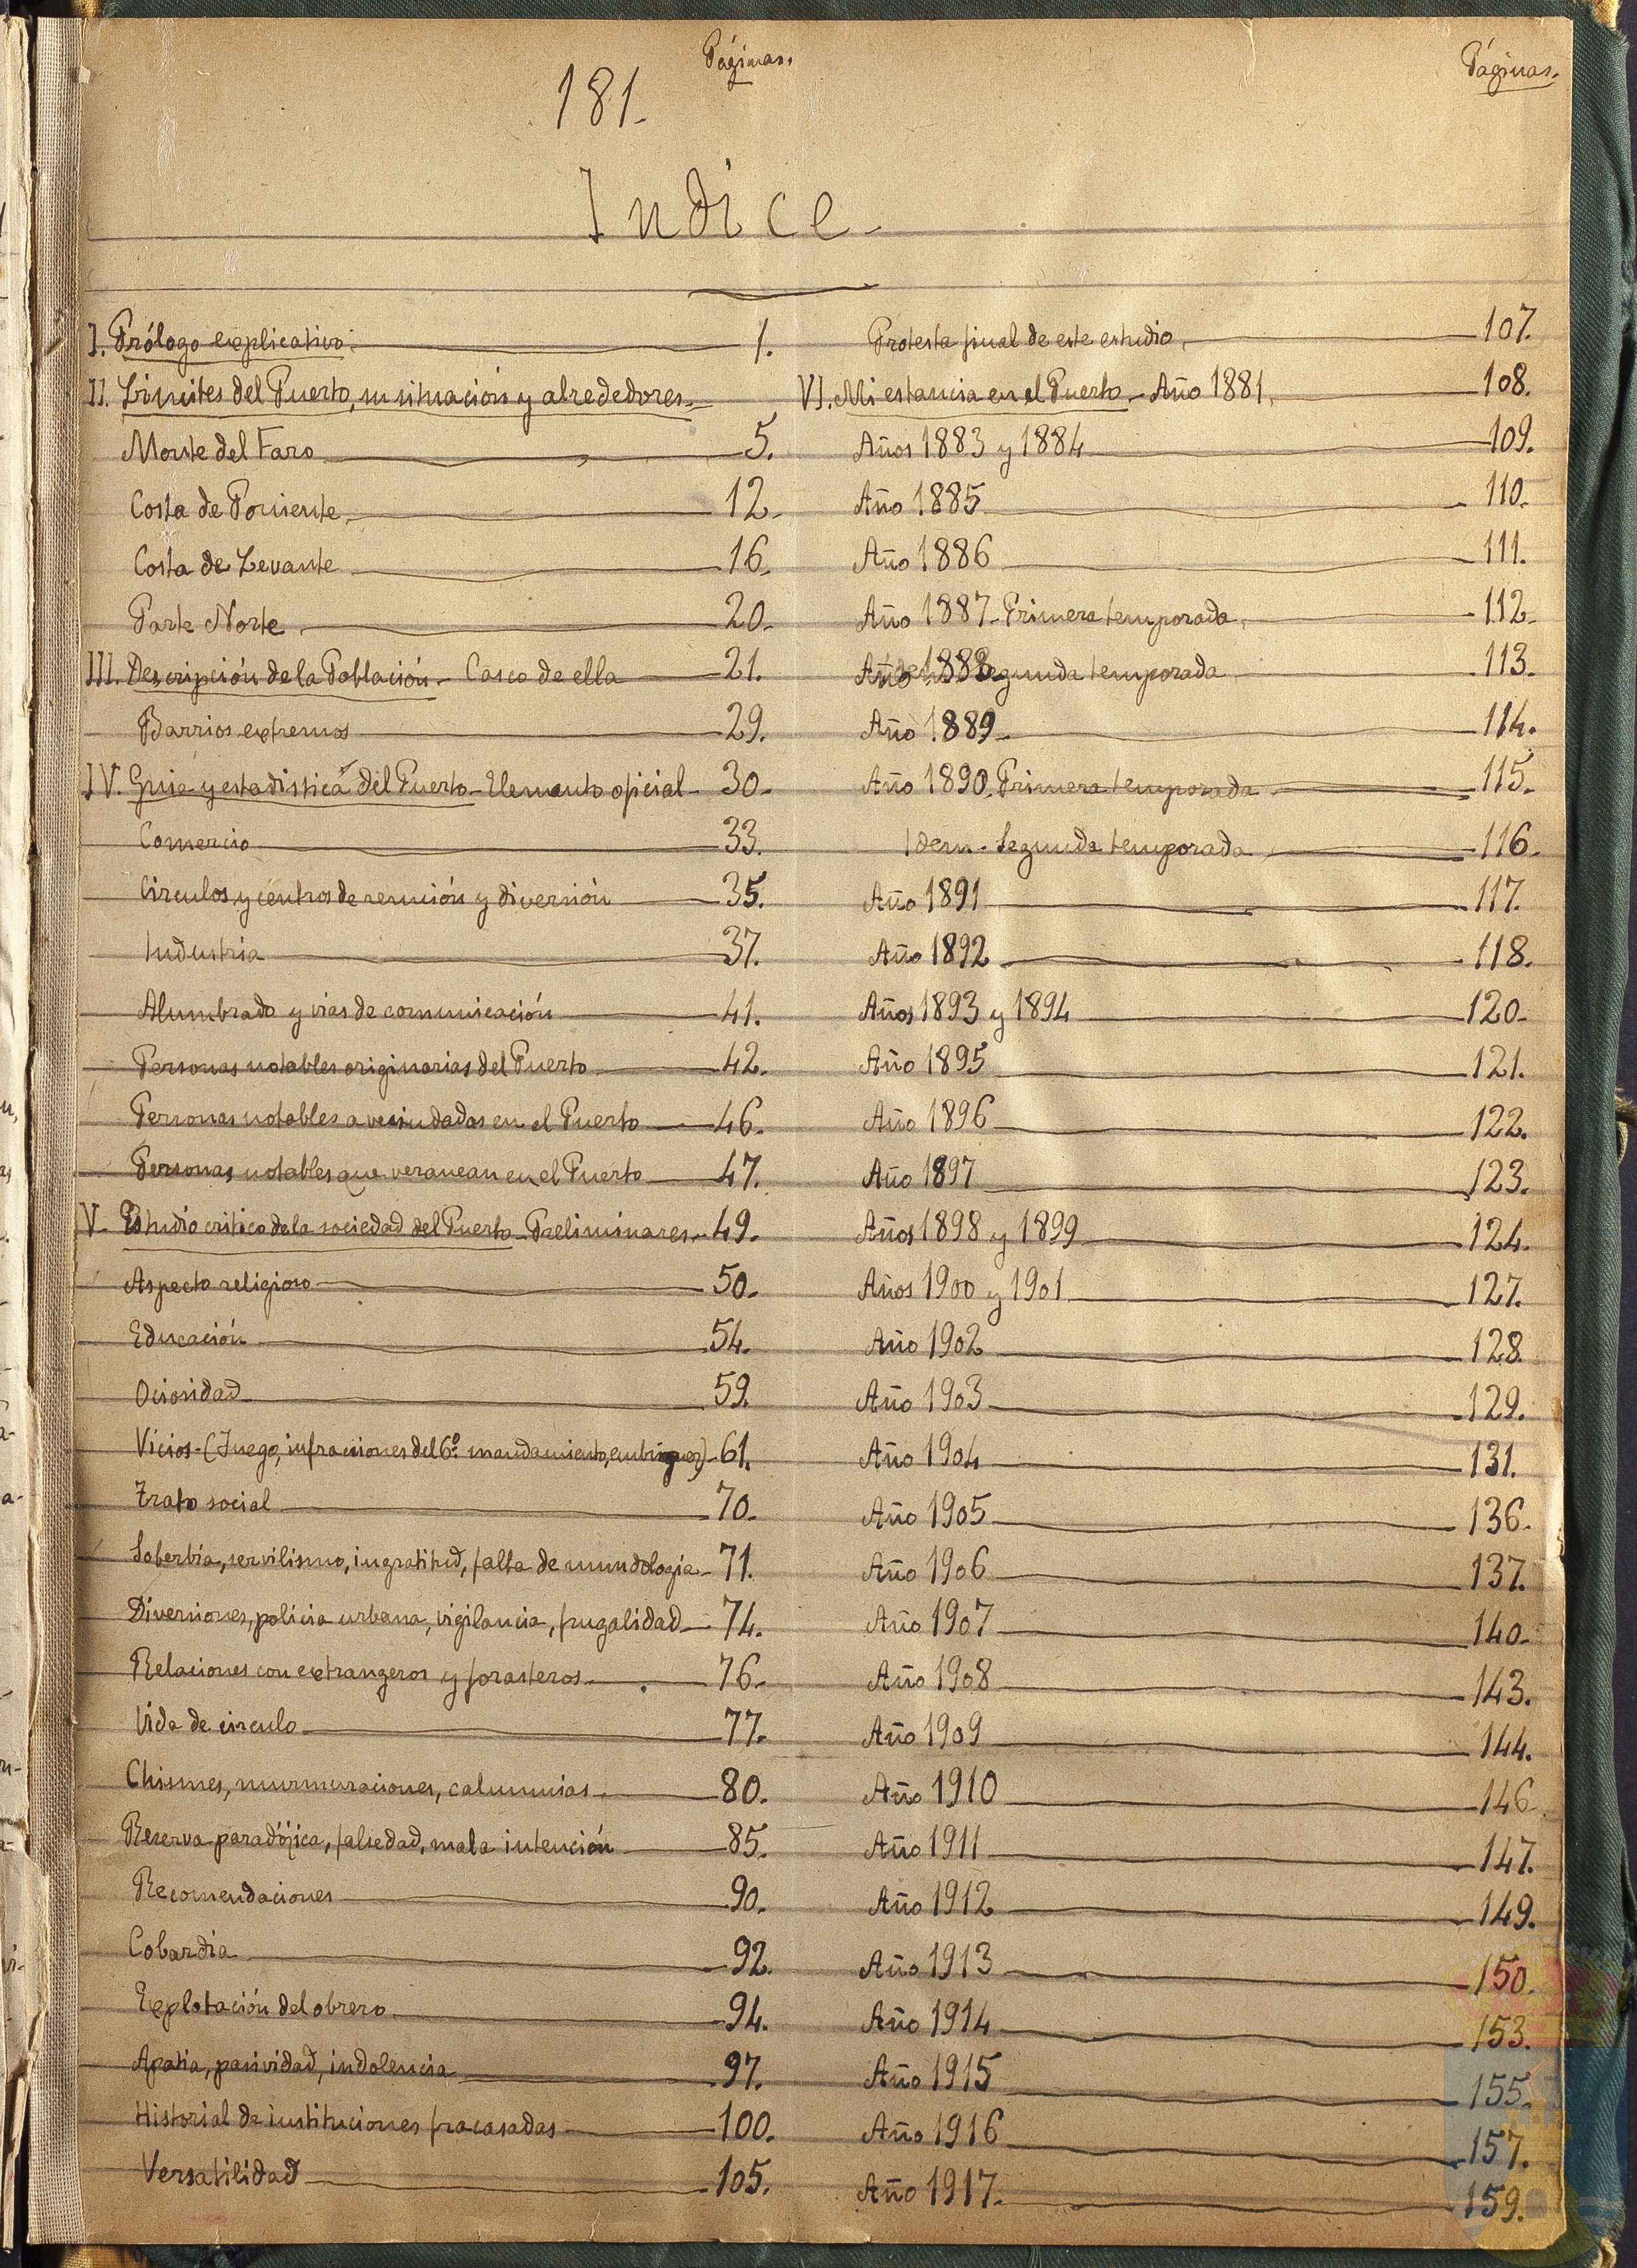 Páginas.
Páginas.
181.
Indice-
I. Prólogo explicativo. 1.
II. Límites del Puerto, su situación y alrededores.
Monte del Faro 5.
Costa de Poniente 12.
Costa de Levante 16.
Parte Norte 20.
III. Descripción de la Población - Casco de ella 21.
Barrios extremos 29.
IV. Guia y estadistica del Puerto - Elemento oficial - 30.
Comercio 33.
Circulos y centros de reunión y diversión 35.
Industria 37.
Alumbrado y vias de comunicación 41.
Personas notables originarias del Puerto 42.
Personas notables avecindadas en el Puerto 46.
Personas notables que veranean en el Puerto 47.
V- Estudio critico de la sociedad del Puerto - Preliminares - 49.
Aspecto religioso 50.
Educación 54.
Ociosidad 59.
Vicios - (Juego, infracciones del 6º mandamiento, embriaguez) - 61.
Trato social 70.
Soberbia, servilismo, ingratitud, falta de mundología - 71.
Diversiones, policia urbana, vigilancia, frugalidad 74.
Relaciones con extrangeros y forasteros 76.
Vida de circulo 77.
Chismes, murmuraciones, calumnias 80.
Reserva paradójica, falsedad, mala intención 85.
Recomendaciones 90.
Cobardia 92.
Explotación del obrero 94.
Apatia, pasividad, indolencia 97.
Historial de instituciones fracasadas 100.
Versatilidad 105.
Protesta final de este estudio 107.
VI. Mi estancia en el Puerto - Año 1881. 108.
Años 1883 y 1884 109.
Año 1885 110.
Año 1886 111.
Año 1887 - Primera temporada 112.
Año 1888 segunda temporada 113.
Año 1889 114.
Año 1890. Primera temporada 115.
Idem - Segunda temporada 116.
Año 1891 117.
Año 1892 118.
Años 1893 y 1894 120.
Año 1895 121.
Año 1896 122.
Año 1897 123.
Años 1898 y 1899 124.
Años 1900 y 1901 127.
Año 1902 128.
Año 1903 129.
Año 1904 131.
Año 1905 136.
Año 1906 137.
Año 1907 140.
Año 1908 143.
Año 1909 144.
Año 1910 146.
Año 1911 147.
Año 1912 149.
Año 1913 150.
Año 1914 153.
Año 1915 155.
Año 1916 157.
Año 1917. 159.